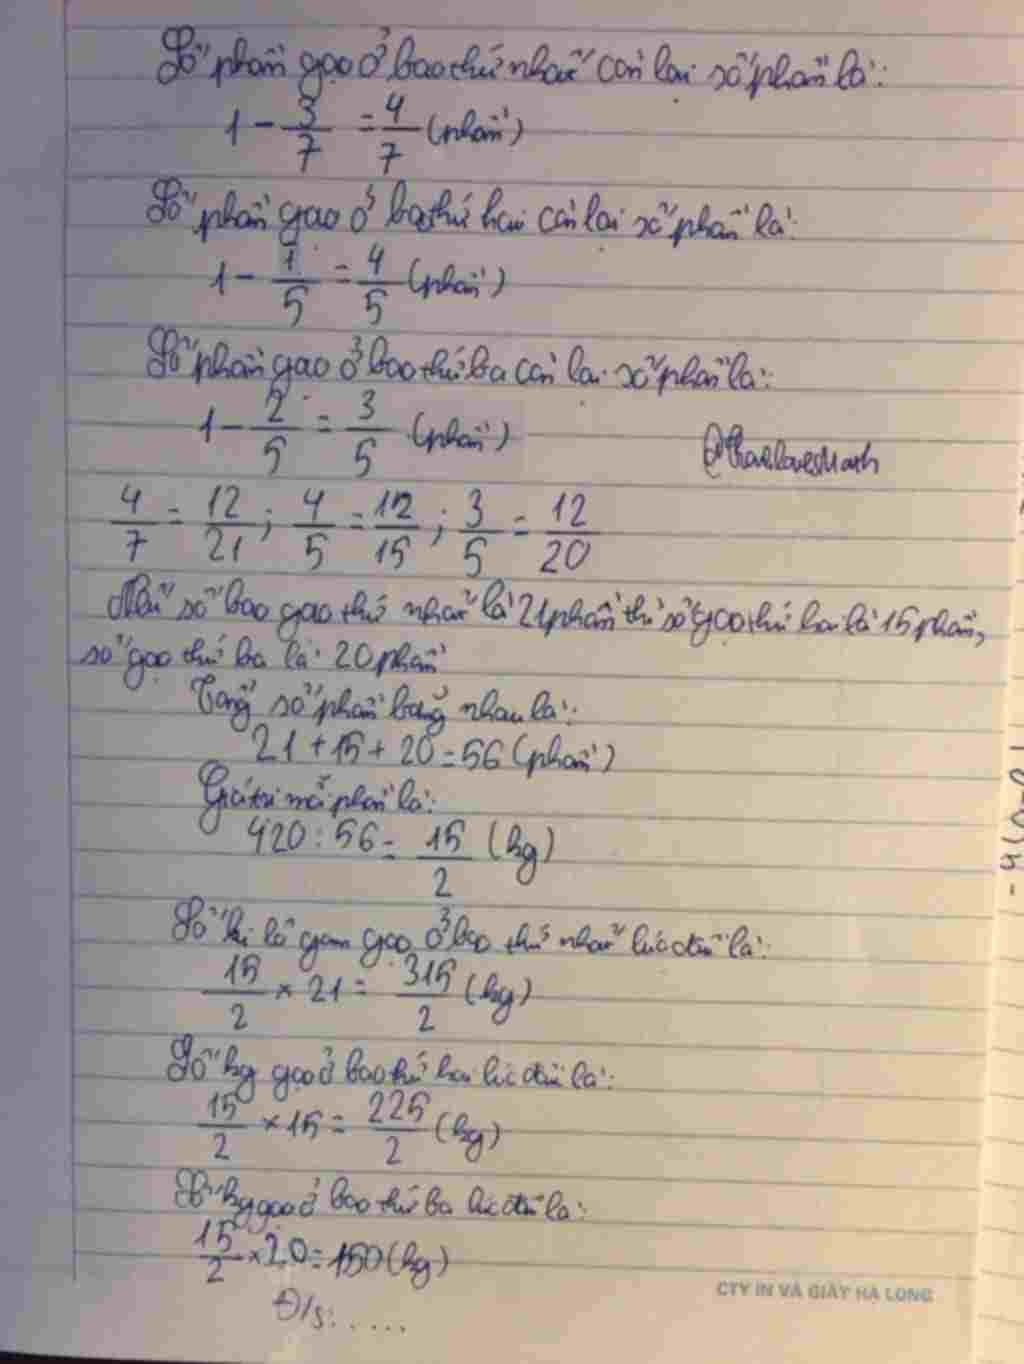 Số phần gạo ở bao thứ nhất còn lại số phần là:
1 - 3/7 = 4/7 (phần)
Số phần gạo ở bao thứ hai còn lại số phần là:
1 - 1/5 = 4/5 (phần)
Số phần gạo ở bao thứ ba còn lại số phần là:
1 - 2/5 = 3/5 (phần)
4/7 = 12/21 ; 4/5 = 12/15 ; 3/5 = 12/20
Nếu số bao gạo thứ nhất là 21 phần thì số gạo thứ hai là 15 phần,
số gạo thứ ba là 20 phần
Tổng số phần bằng nhau là:
21 + 15 + 20 = 56 (phần)
Giá trị mỗi phần là:
420 : 56 = 15/2 (kg)
Số ki lô gam gạo ở bao thứ nhất lúc đầu là:
15/2 × 21 = 315/2 (kg)
Số kg gạo ở bao thứ hai lúc đầu là:
15/2 × 15 = 225/2 (kg)
Số kg gạo ở bao thứ ba lúc đầu là:
15/2 × 20 = 150 (kg)
Đ/s: ....
CTY IN VÀ GIẤY HẠ LONG